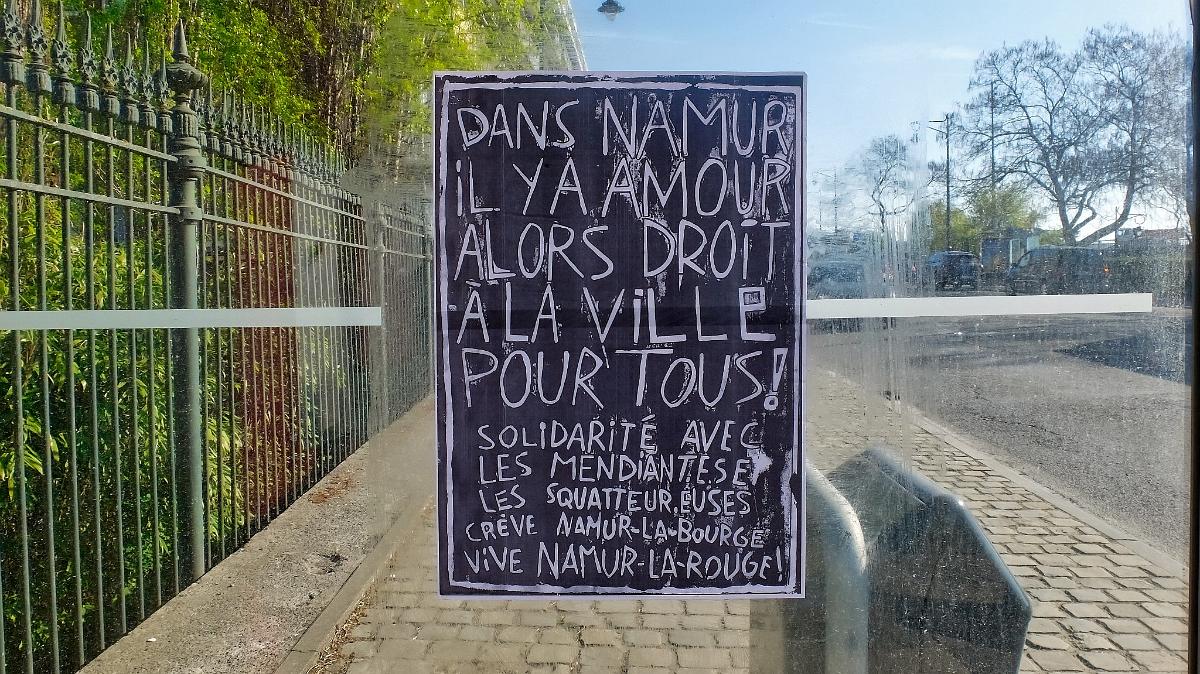 DANS NAMUR
iL Y A AMOUR
ALORS DROiT
À LA ViLLE
POUR TOUS!
SOLiDARiTÉ AVEC
LES MENDIANT.ES ET
LES SQUATTEUR.EUSES
CRÈVE NAMUR-LA-BOURGE
ViVE NAMUR-LA-ROUGE!